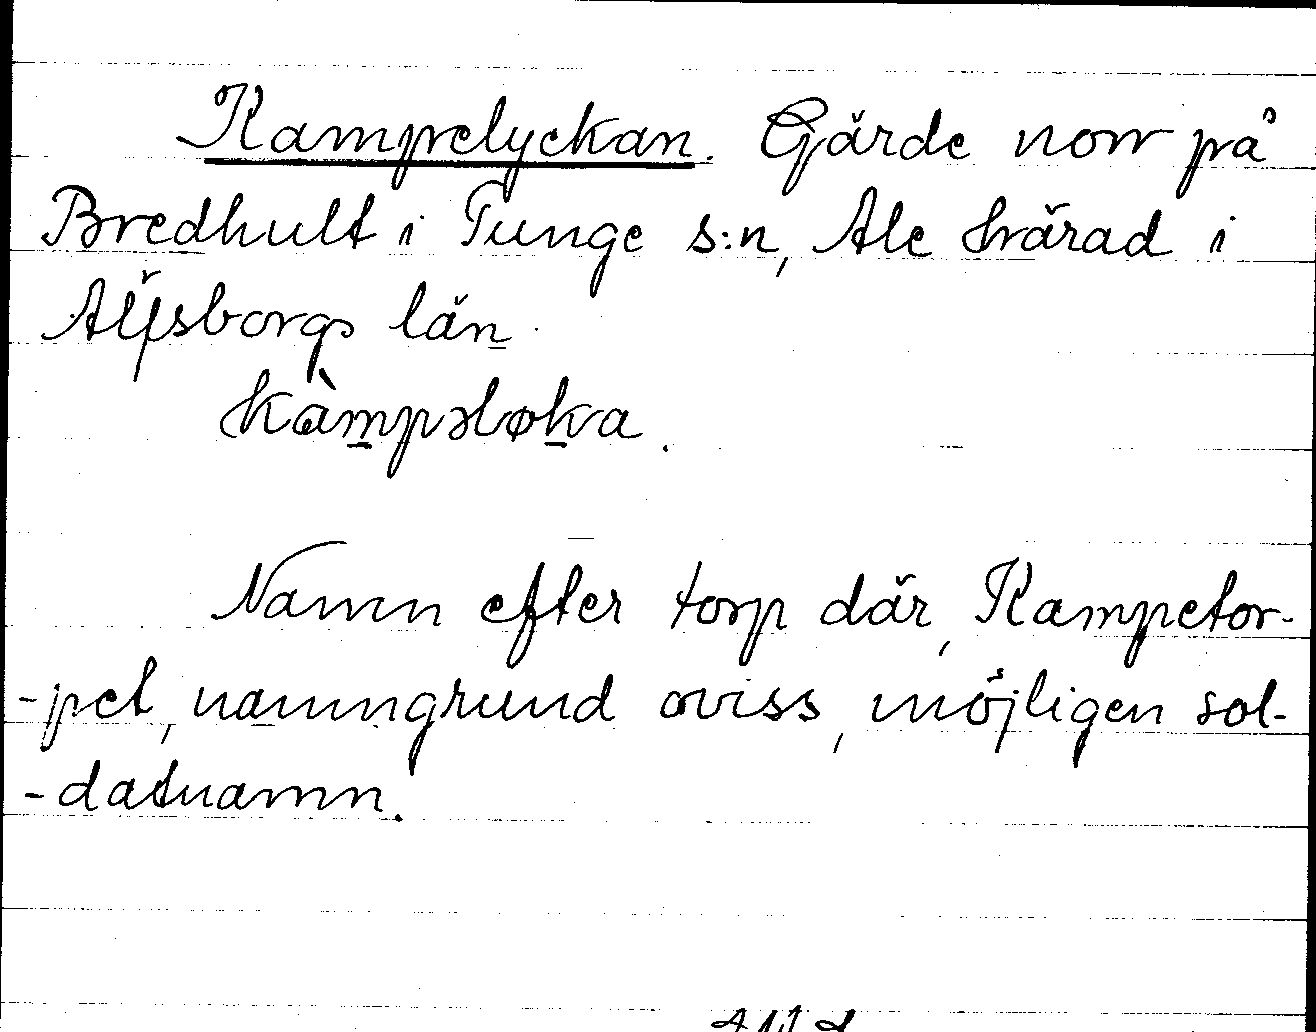 Kampelyckan. Gärde norr på
Bredhult i Tunge s:n, Ale härad i
Älfsborgs län.
kàmpəløka.
Namn efter torp där, Kampetor-
-pet, namngrund oviss, möjligen sol-
-datnamn.